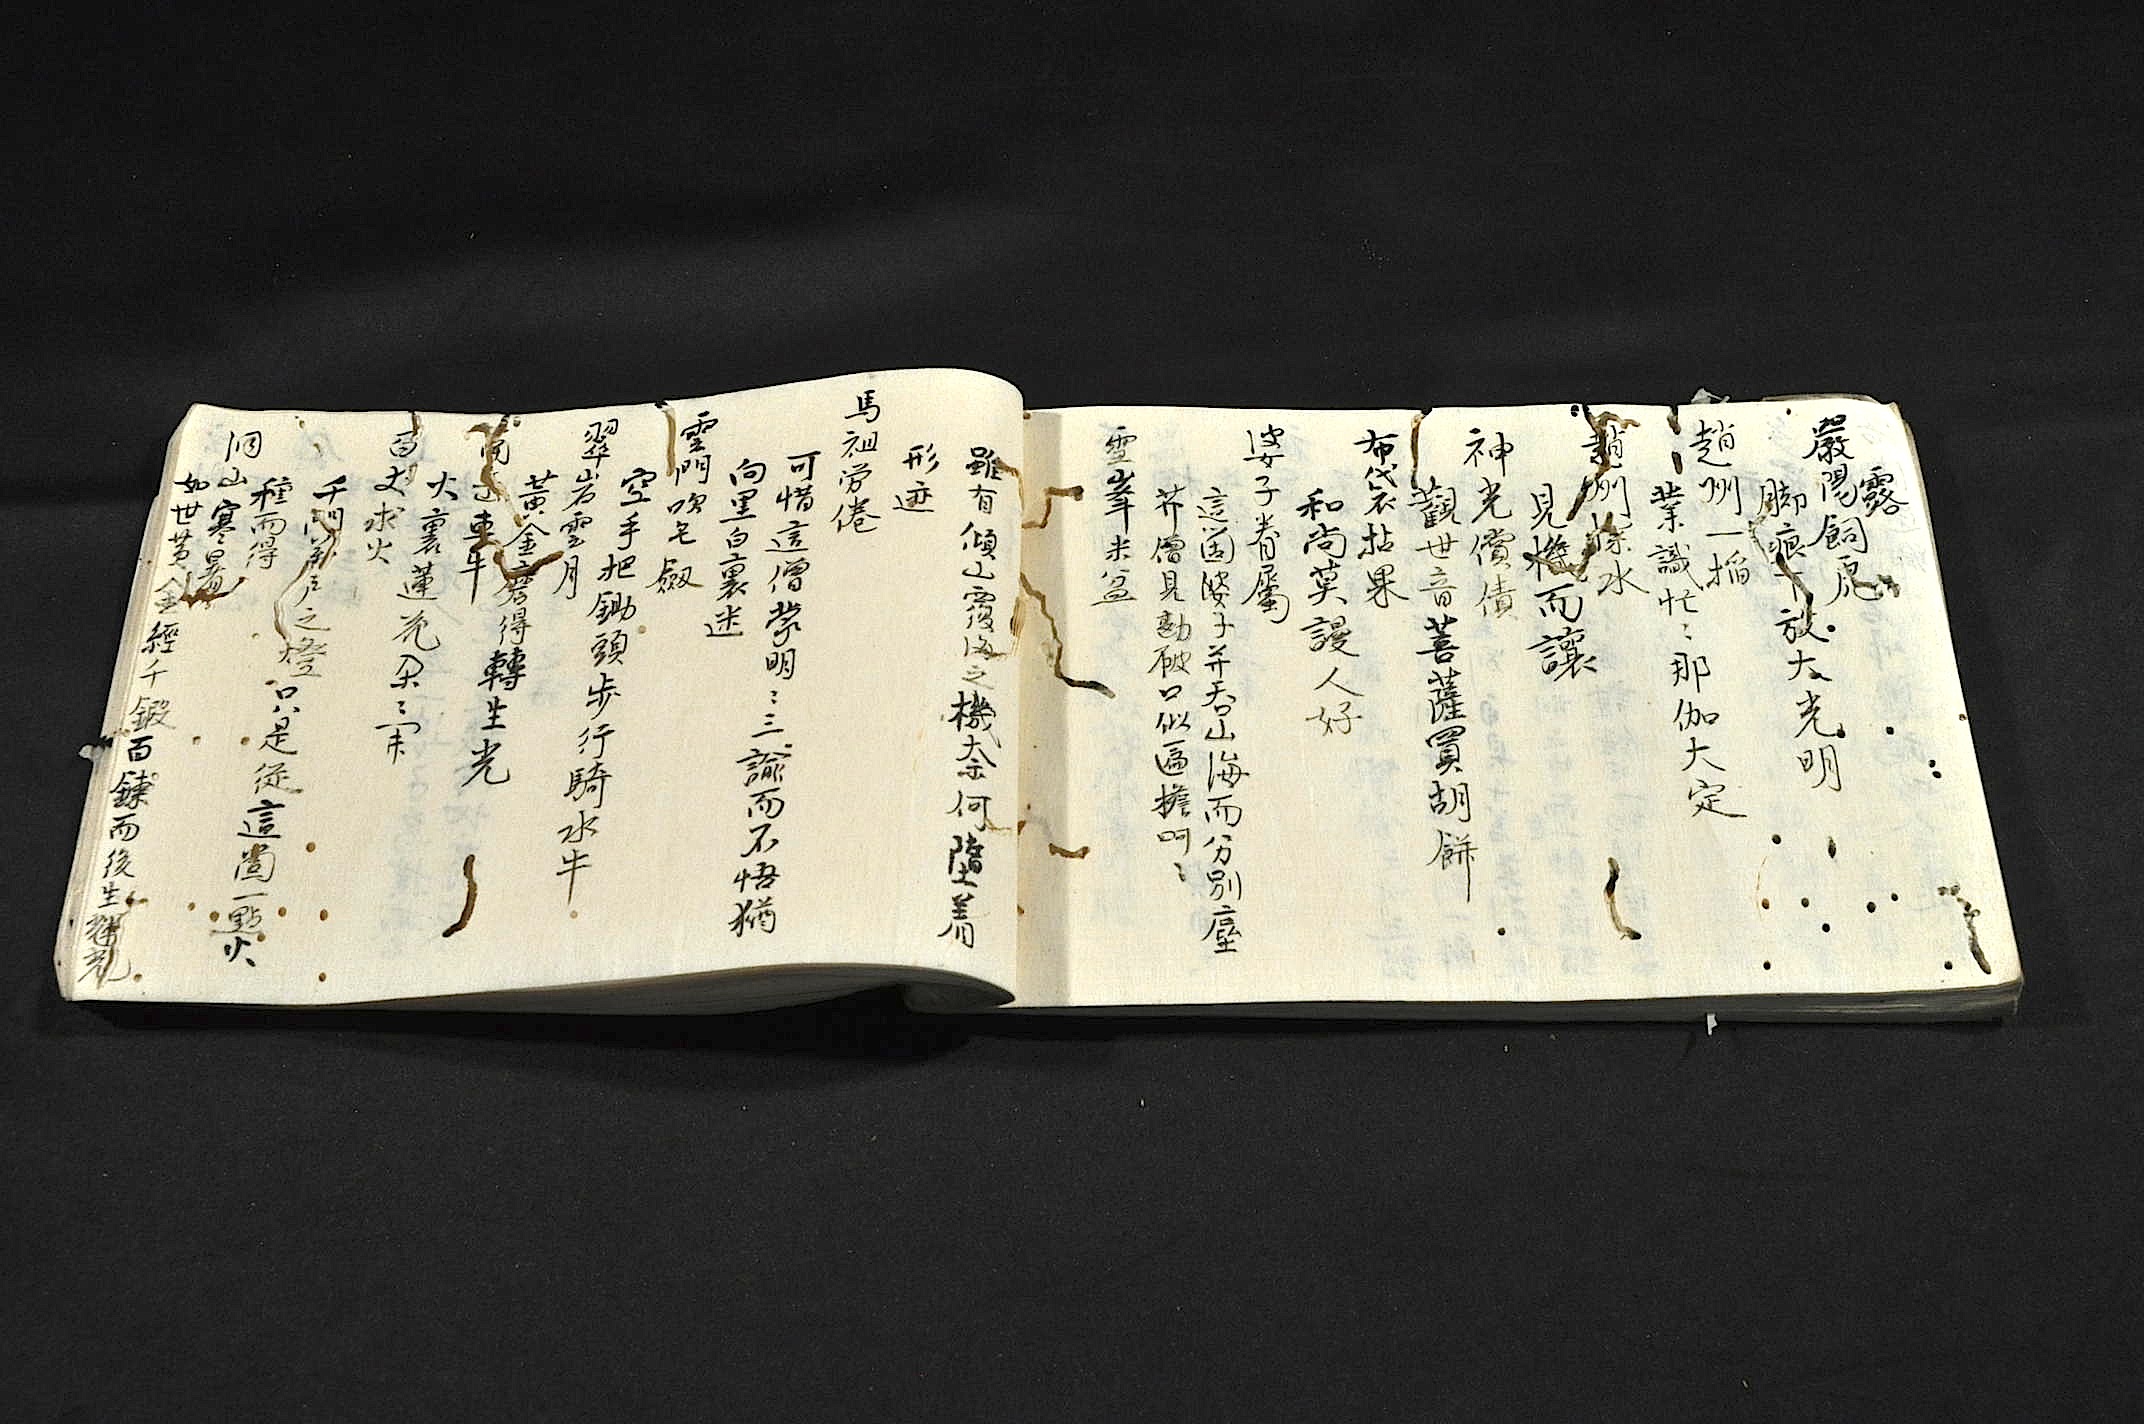 露
嚴陽飼虎
脚痕下放大光明
趙州一搯
業識忙〻那伽大定
趙州探水
見機而讓
神光償債
觀世音菩薩買胡餅
布袋拈果
和尚莫謾人好
婆子眷屬
這箇婆子并吞山海而分別塵
芥僧見勘破口似匾擔呵〻
雪峯米盆
雖有傾山覆海之機奈何墮着
形迹
馬祖労倦
可惜這僧掌明〻三諭而不悟猶
向黒白裏迷
雲門吹毛劔
空手把鋤頭歩行騎水牛
翠岩雲月
黄金磨得轉生光
車牛
火裏蓮花朶〻
百丈求火
千門萬戸之燈只是從這箇一點火
種而得
洞山寒暑
如世黄金經千鍛百錬而後生輝光